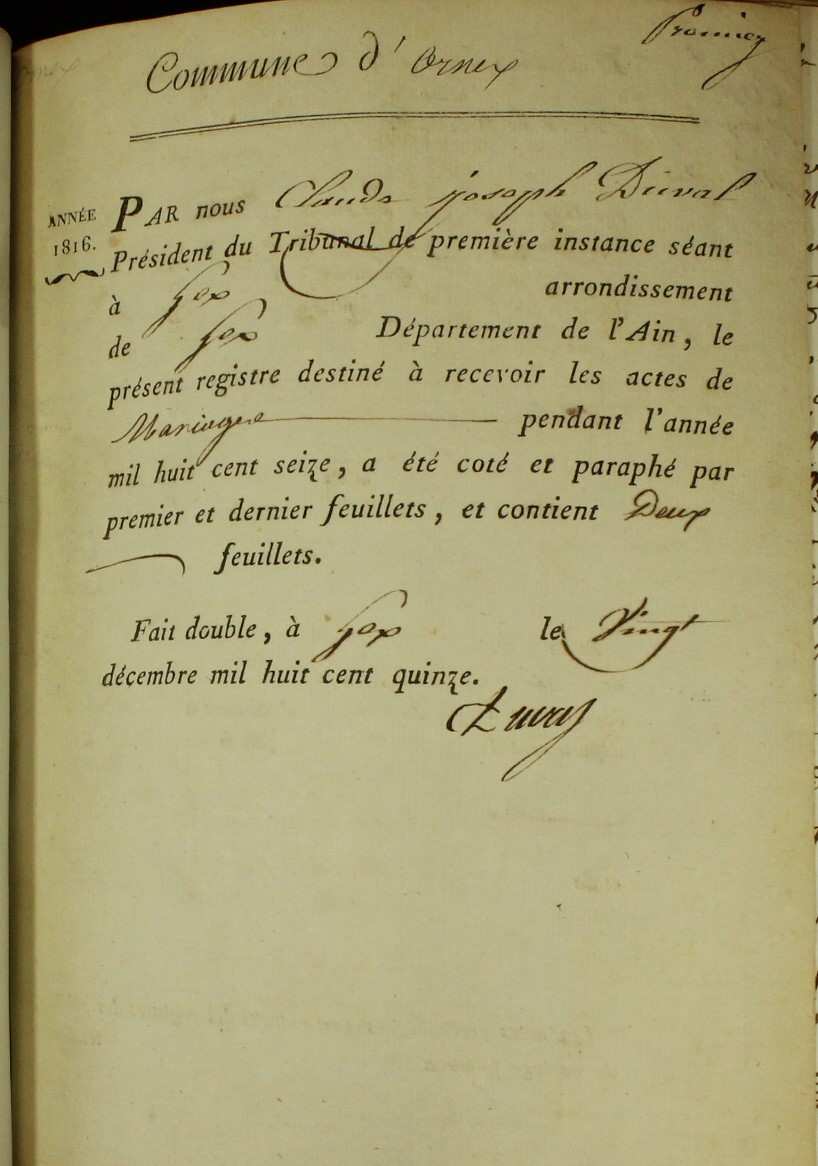 Premier
Commune d'Ornex
ANNÉE
1816.
PAR nous Claude Joseph Duval
Président du Tribunal de première instance séant
à Gex arrondissement
de Gex Département de l'Ain, le
présent registre destiné à recevoir les actes de
Mariages pendant l'année
mil huit cent seize, a été coté et paraphé par
premier et dernier feuillets, et contient Deux
feuillets.
Fait double, à Gex le Vingt
décembre mil huit cent quinze.
Duval